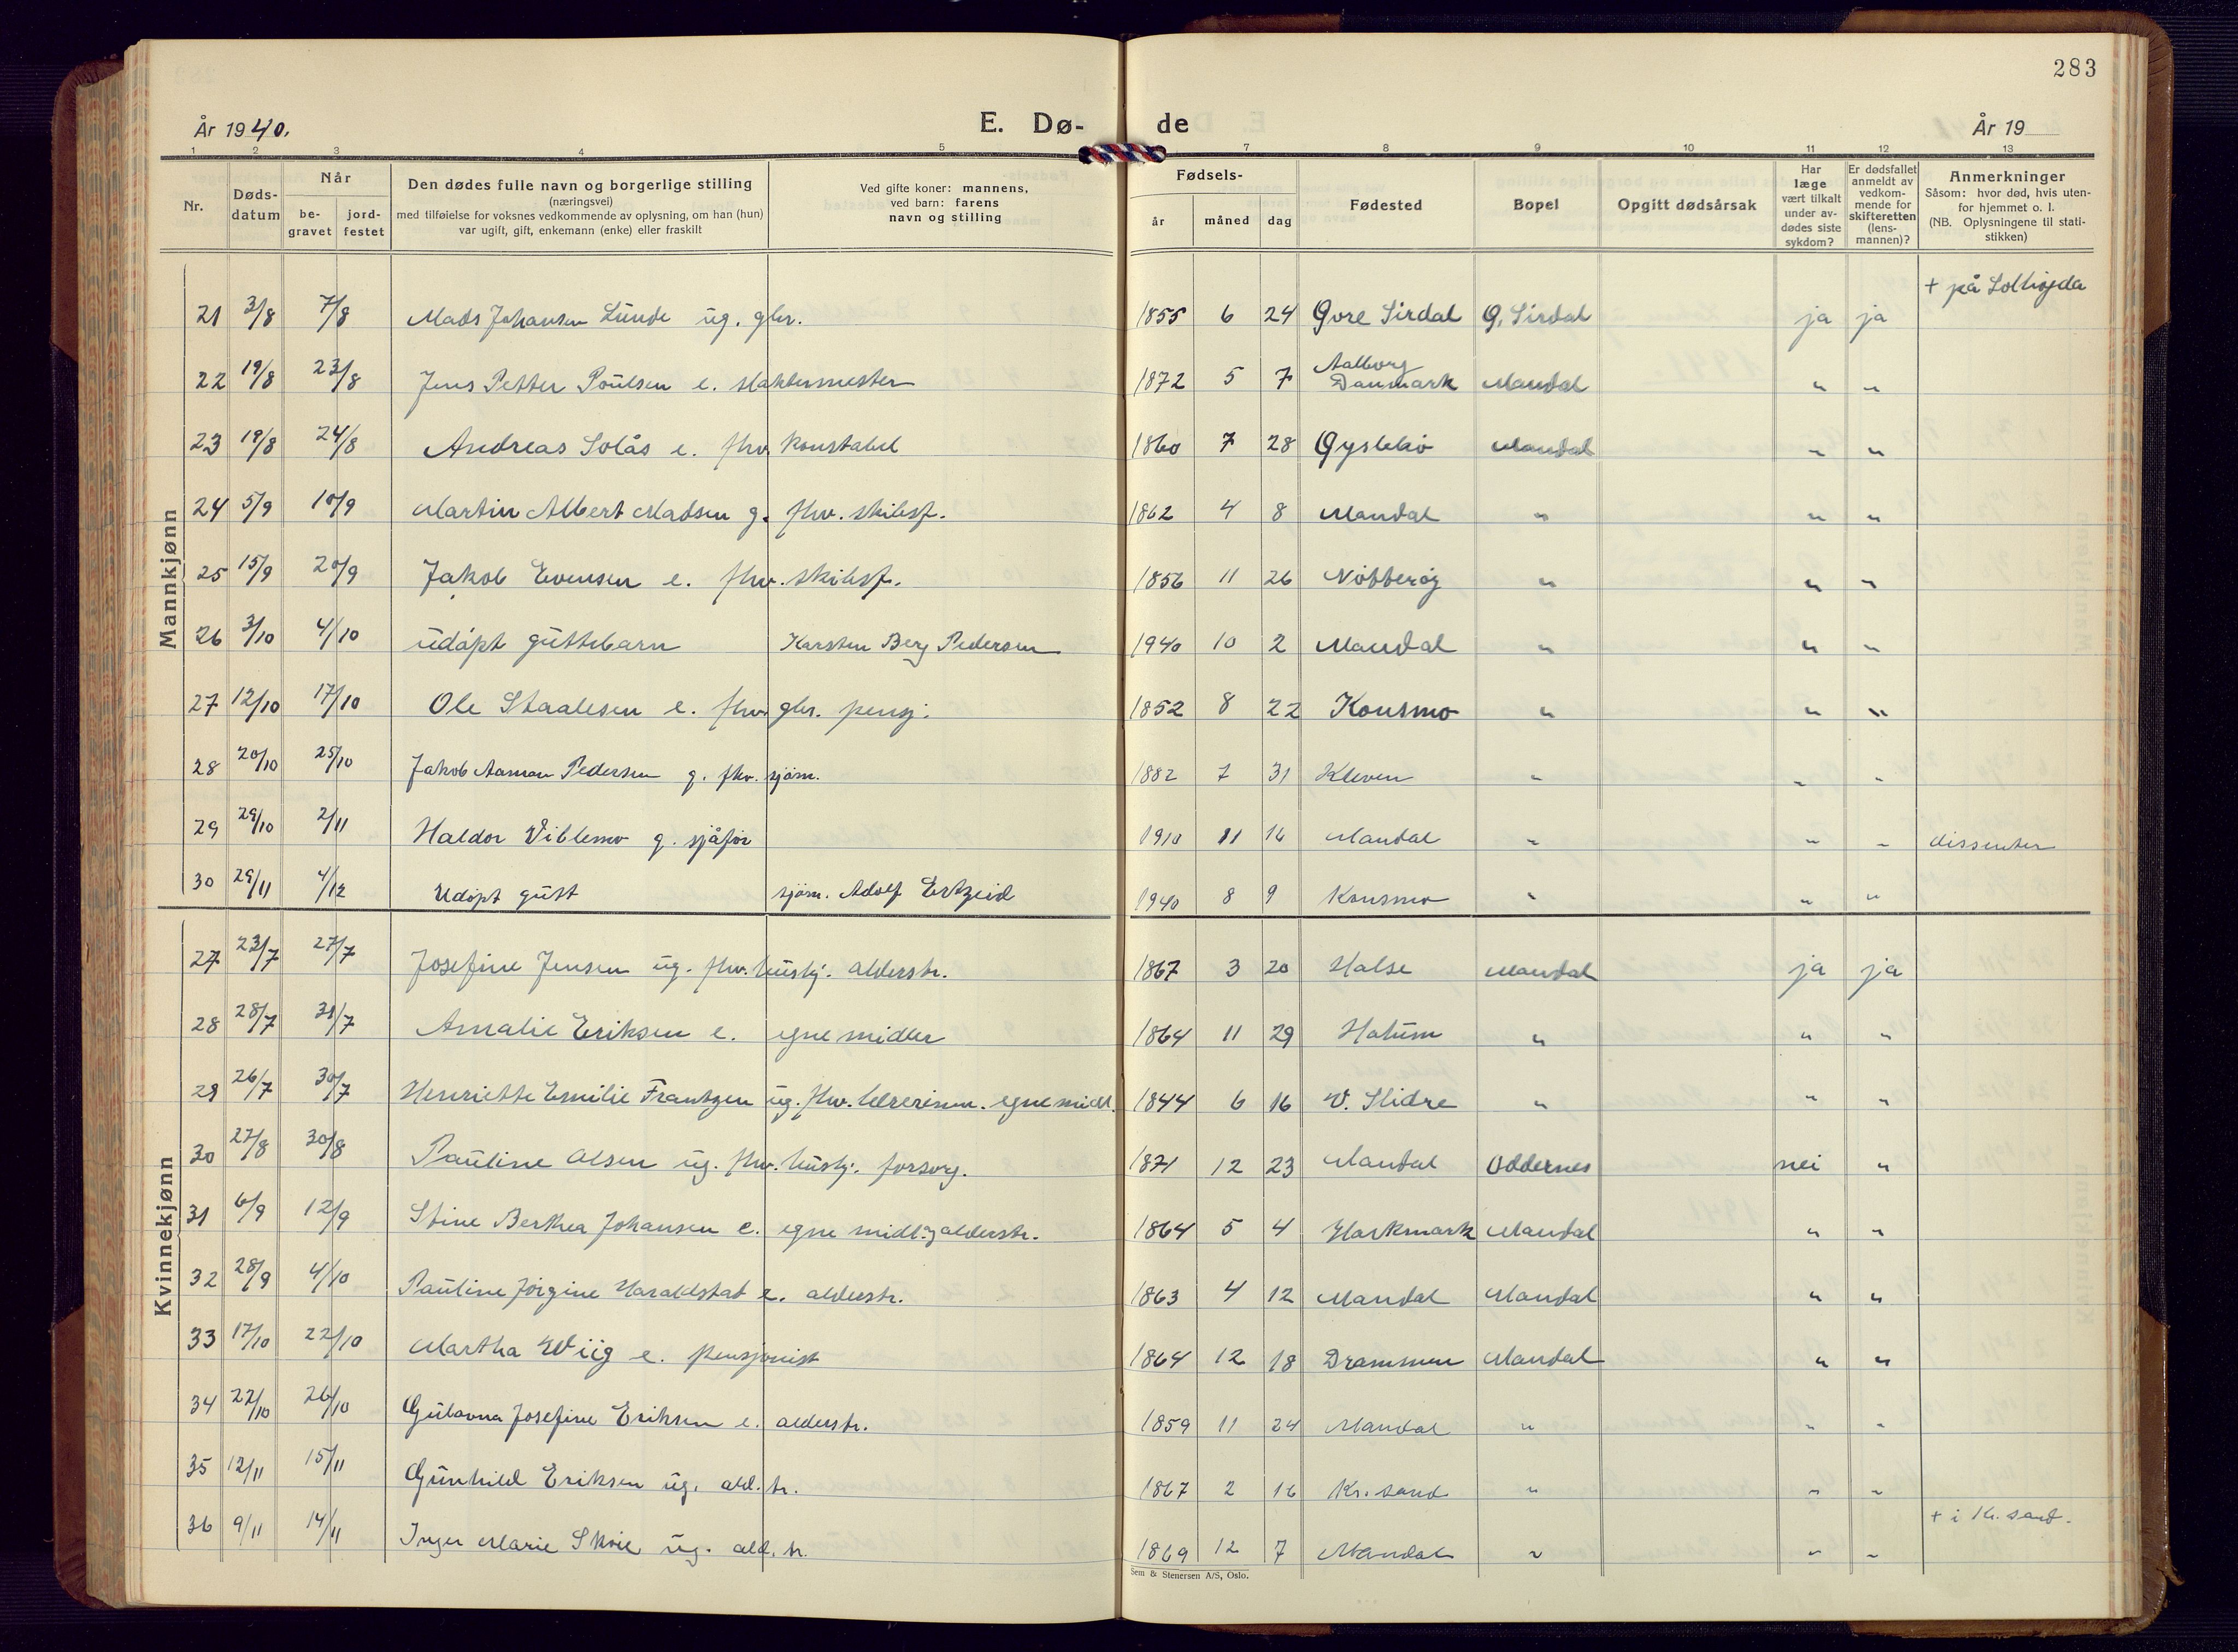 283
År 1940. E. Dø- de År 19
1 2 3 4 5 7 8 9 10 11 12 13
Nr. Døds-datum Når be-gravet jord-festet Den dødes fulle navn og borgerlige stilling (næringsvei) med tilføielse for voksnes vedkommende av oplysning, om han (hun) var ugift, gift, enkemann (enke) eller fraskilt Ved gifte koner: mannens, ved barn: farens navn og stilling Fødsels- år måned dag Fødested Bopel Opgitt dødsårsak Har læge vært tilkalt under av-dødes siste sykdom? Er dødsfallet anmeldt av vedkom-mende for skifteretten (lens-mannen)? Anmerkninger Såsom: hvor død, hvis uten-for hjemmet o. l. (NB. Oplysningene til stati-stikken)
Mannkjønn
21 3/8 7/8 Mads Johansen Lunde ug. gbr. 1855 6 24 Øvre Sirdal Ø. Sirdal ja ja + på Solhøgda
22 19/8 23/8 Jens Petter Poulsen e. slaktermester 1872 5 7 Aalborg Danmark Mandal " "
23 19/8 24/8 Andreas Solås e. fhv. konstabel 1860 7 28 Øyslebø Mandal " "
24 5/9 10/9 Martin Albert Madsen g. fhv. skibsf. 1862 4 8 Mandal " " "
25 15/9 20/9 Jakob Evensen e. fhv. skibsf. 1856 11 26 Nøtterøy " " "
26 3/10 4/10 udøpt guttebarn Karsten Berg Pedersen 1940 10 2 Mandal " " "
27 12/10 17/10 Ole Staalesen e. fhv. gbr. pensj. 1852 8 22 Konsmo " " "
28 20/10 25/10 Jakob Aaman Pedersen g. fhv. sjøm. 1882 7 31 Kleven " " "
29 29/10 2/11 Haldor Viblemo g. sjåfør 1910 11 16 Mandal " " " dissenter
30 29/11 4/12 Udøpt gutt sjøm. Adolf Ertzeid 1940 8 9 Konsmo " " "
Kvinnekjønn
27 23/7 27/7 Josefine Jensen ug. fhv. hushj. alderstr. 1867 3 20 Halse Mandal ja ja
28 28/7 31/7 Amalie Eriksen e. egne midler 1864 11 29 Holum " " "
29 26/7 30/7 Henriette Emilie Frantzen ug. fhv. lærerinn. egne midl. 1844 6 16 V. Slidre " " "
30 27/8 30/8 Pauline Olsen ug. fhv. hushj. forsorg. 1871 12 23 Mandal Oddernes nei "
31 6/9 12/9 Stine Berthea Johansen e. egne midl. og alderstr. 1864 5 4 Harkmark Mandal " "
32 28/9 4/10 Pauline Jørgine Haraldstad e. alderstr. 1863 4 12 Mandal Mandal " "
33 17/10 22/10 Martha Wiig e. pensjonist 1864 12 18 Drammen Mandal " "
34 22/10 26/10 Gulovna Josefine Eriksen e. alderstr. 1859 11 24 Mandal " " "
35 12/11 15/11 Gunhild Eriksen ug. ald. tr. 1867 2 16 Kr. sand " " "
36 9/11 14/11 Inger Marie Skoie ug. ald. tr. 1869 12 7 Mandal " " " + i Kr. sand.
Sem & Stenersen A/S, Oslo.